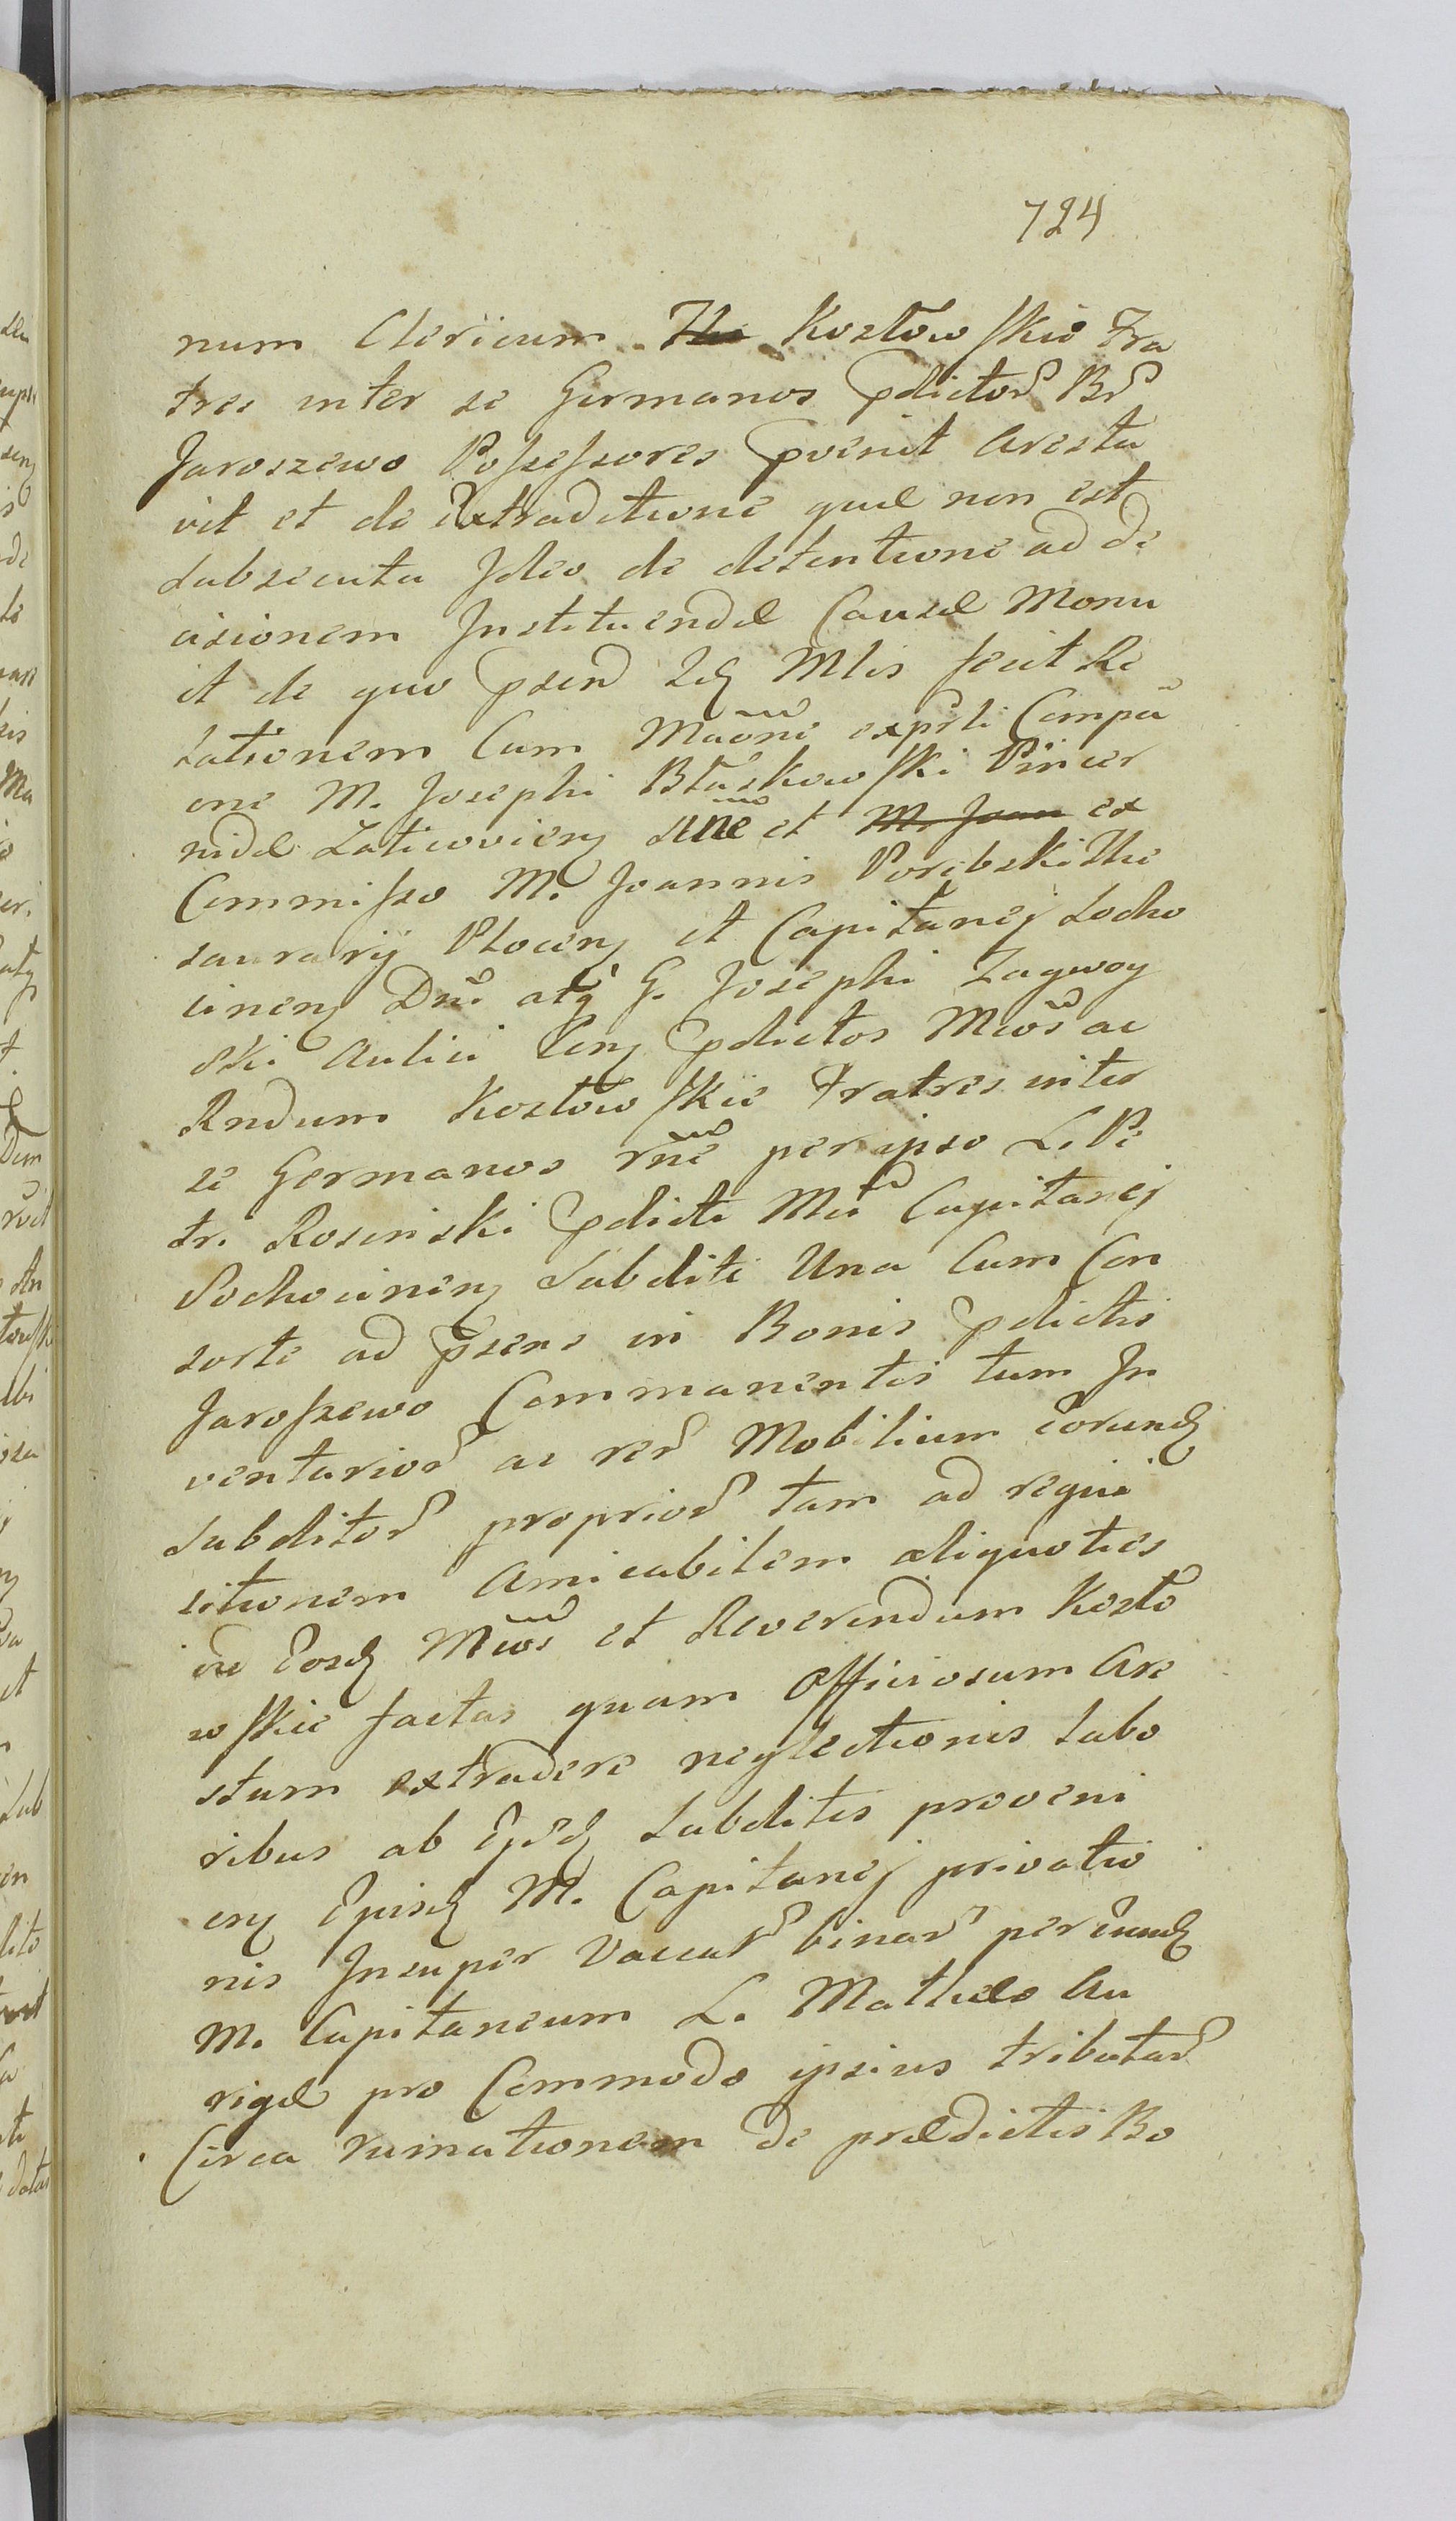 724
num Clericum Kozłowskie Fra
tres inter se Germanos pdictor Br
Jaroszewo Possessores pvenit aresta
vit et de Extraditione quæ non est
subsecuta Ideo de detentione ad de
cisionem Instituendæ Causæ Monu
it de quo psen Mtis fecit Re
lationem Cum
one M. Josephi Błaskowski Pincer
nidæ et M. Joan ex
Commisso M. Joannis Porębski The
saurarij Plocen et Capitanej Socho
cinen Dni atq G. Josephi Zagwoy
ski Aulici pdictos Mcos ac
Rndum Kozłowskie Fratres inter
se Germanos rne per ipso L. Pe
tr. Rosinski pdicti Mci Capitanej
Sochocinen Subditi Una Cum Con
sorte ad psens in Bonis pdictis
Jaroszewo Commanentis tum In
ventarior ac rer Mobilium eorund
Subditor proprior tam ad requi
sitionem Amicabilem aliquoties
ad Eosd Mcos et Reverendum Kozło
wskie factas quam Officiosum Are
stum extradere neglectionis labo
ribus ab Subditis proveni
en M. Capitanej privatio
nis Insuper Vaccar binar per eund
M. Capitaneum L. Matheo Au
rigæ pro Commodo ipsius tributar
Circa rumationem de prædictis Bo